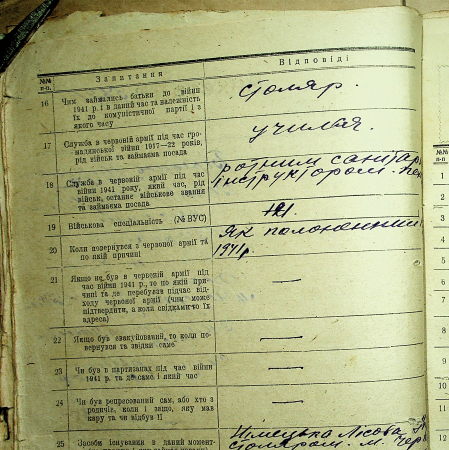 №№ п-п.
Запитання
Відповіді
16
Чим займались батьки до війни
1941 р. і в даний час та належність
їх до комуністичної партії і з
якого часу
столяр.
17
Служба в червоній армії під час гро-
мадянської війни 1917—22 років,
рід військ та займаєма посада
училья.
18
Служба в червоній армії під час
війни 1941 року, який час, рід
військ, останнє військове звання
та займаєма посада
ротним санітар
інструктором.
19
Військова спеціальність (№ ВУС)
20
Коли повернувся з червоної армії та
по якій причині
Як полонений
1941 р.
21
Якщо не був в червоній армії під
час війни 1941 р., то по якій при-
чині та де перебував підчас від-
ходу червоної армії (чим може
підтвердити, а коли свідками то їх
адреса)
—
22
Якщо був евакуйований, то коли по-
вернувся та звідки саме
—
23
Чи був в партизанах під час війни
1941 р. та де саме і який час
—
24
Чи був репресований сам, або хто з
родичів, коли і защо, яку мав
кару та чи відбув її
—
25
Засоби існування в даний момент
Німецька Лісова
столяром. м. Чер
№№
п-п
1
2
3
4
5
6
7
8
9
10
11
12